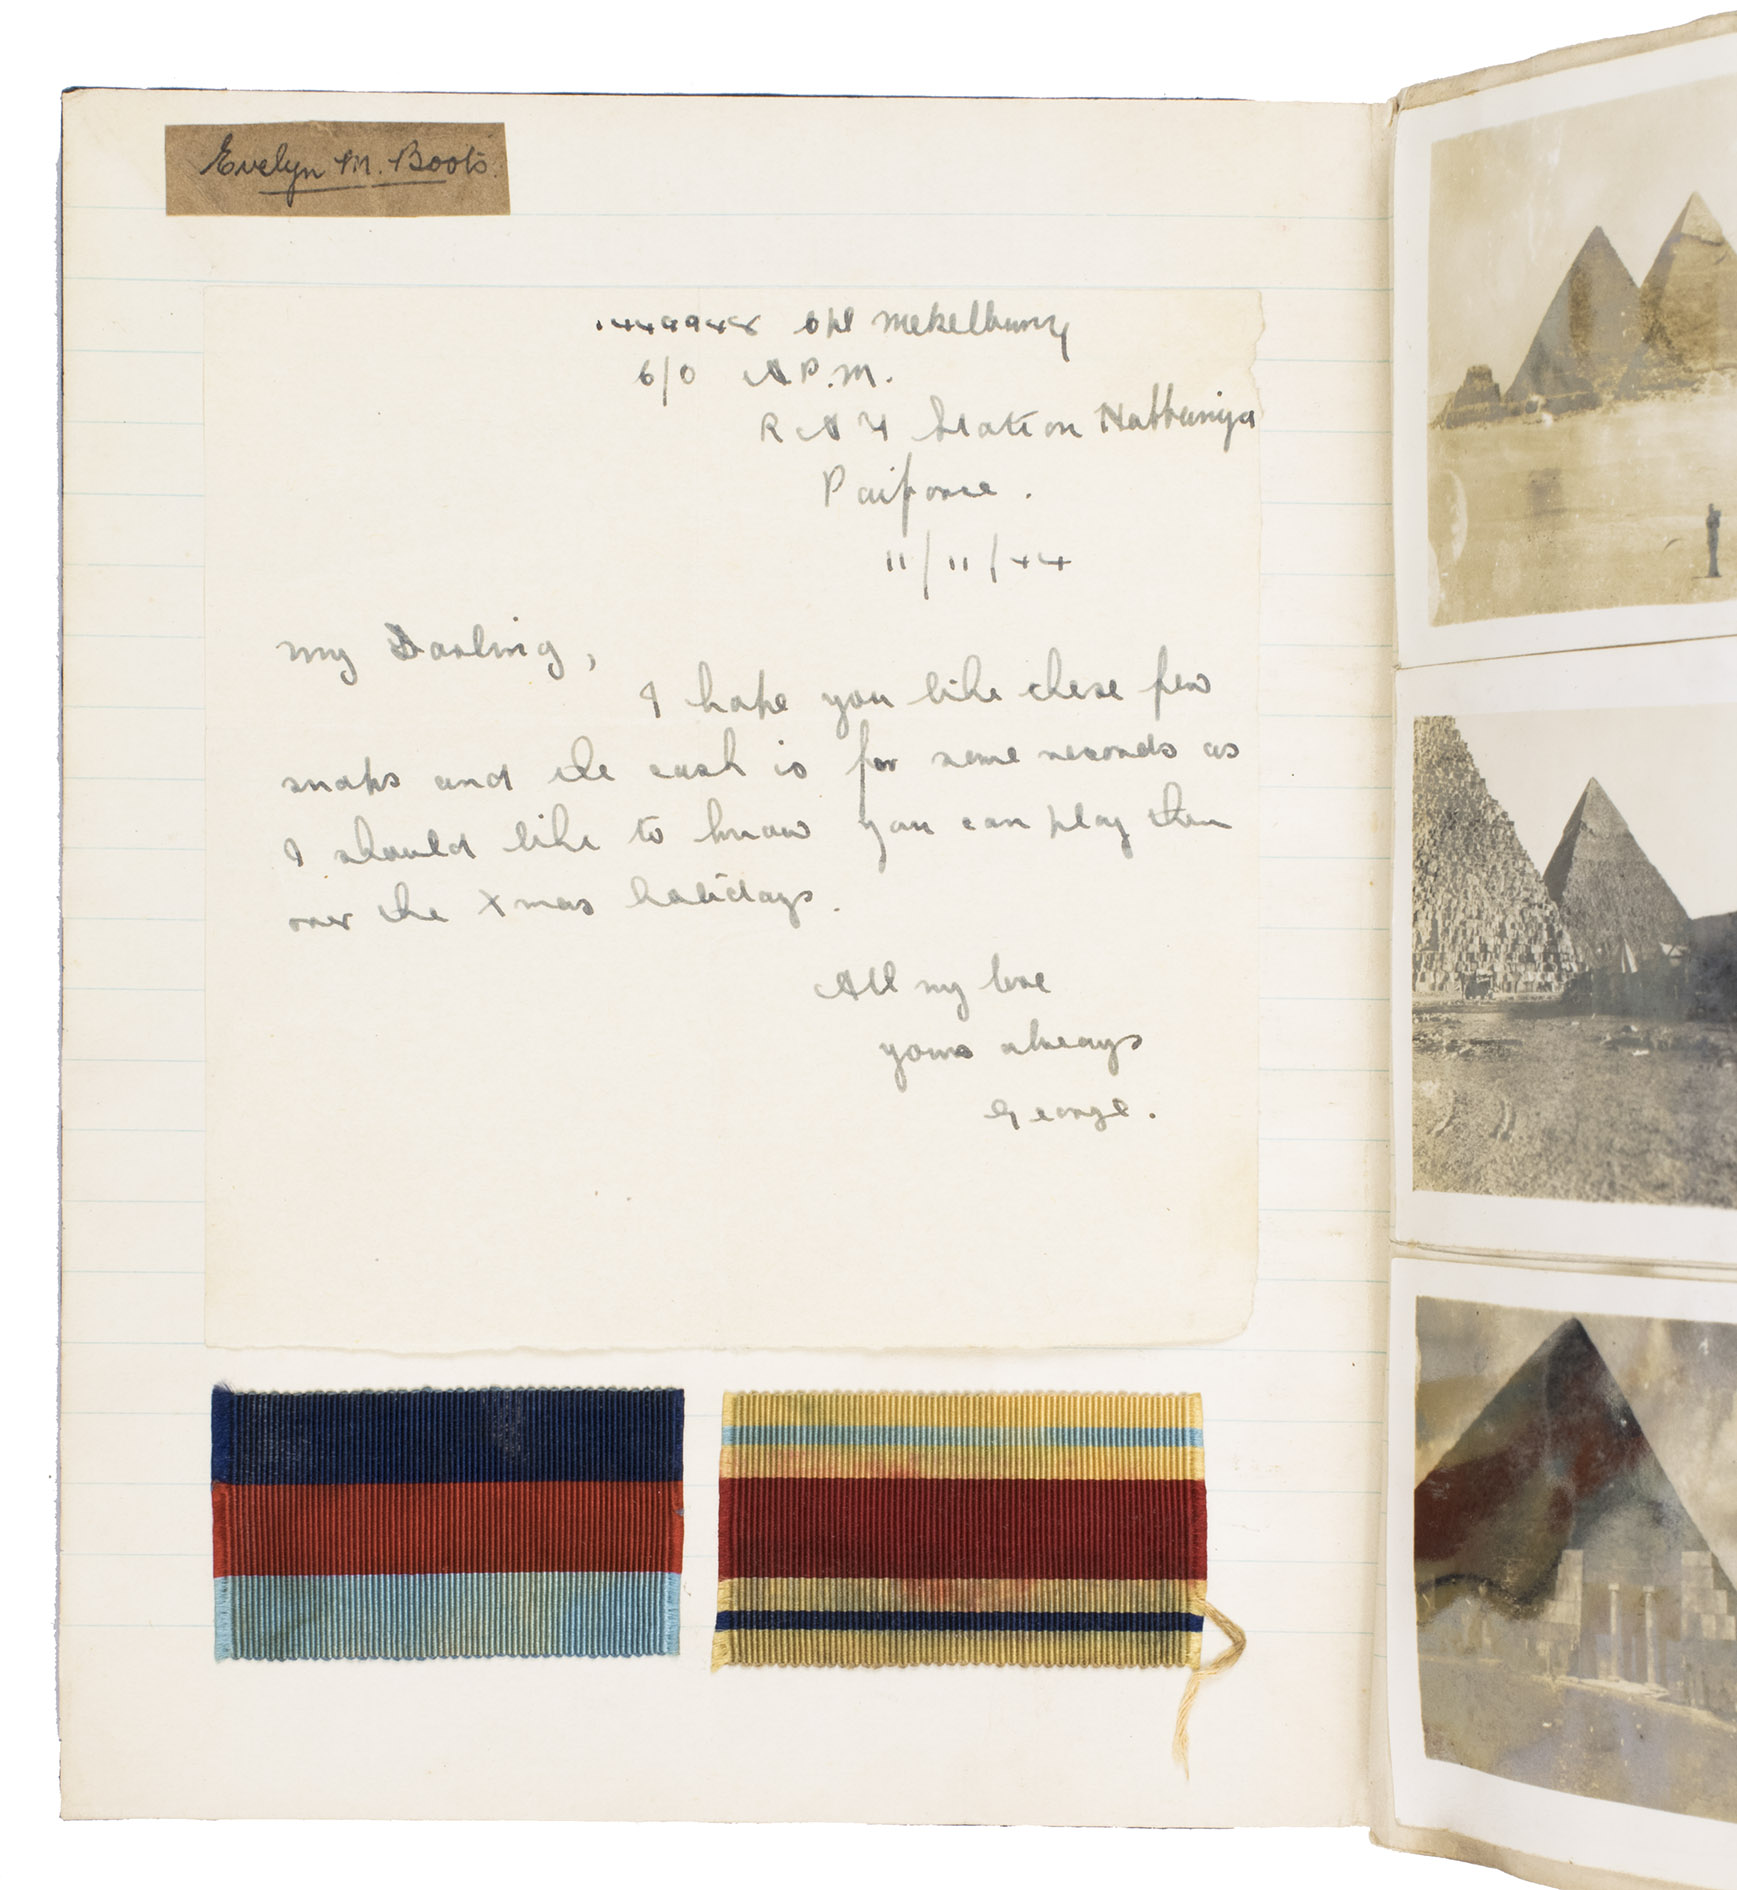 Evelyn M. Boots.
1449948 Cpl Mekelburg
C/O A.P.M.
R A F Station Habbaniya
Paiforce.
11/11/44
My Darling,
I hope you like these few
snaps and the cash is for some records as
I should like to know you can play them
over the Xmas holidays.
All my love
yours always
George.